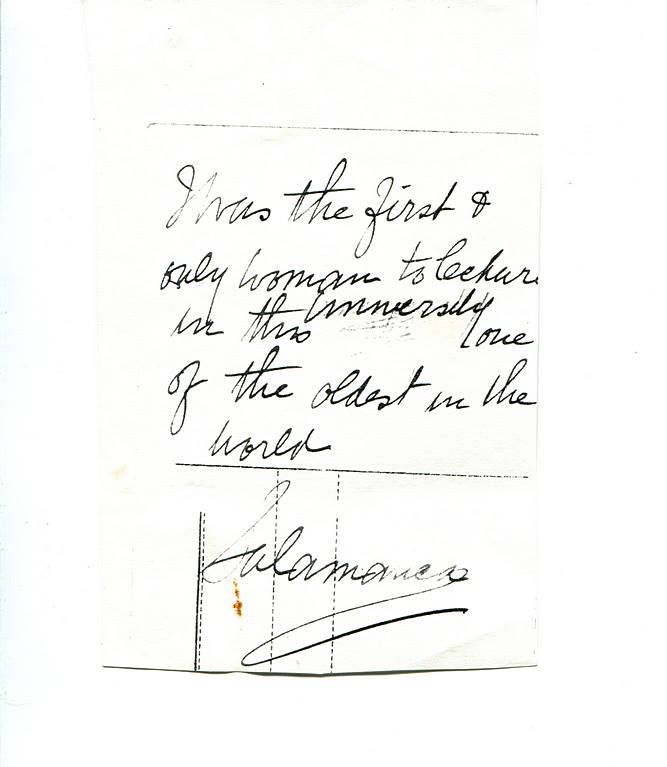 I was the first &
only woman to lecture
in this University
(one
of the oldest in the
world
Salamanca